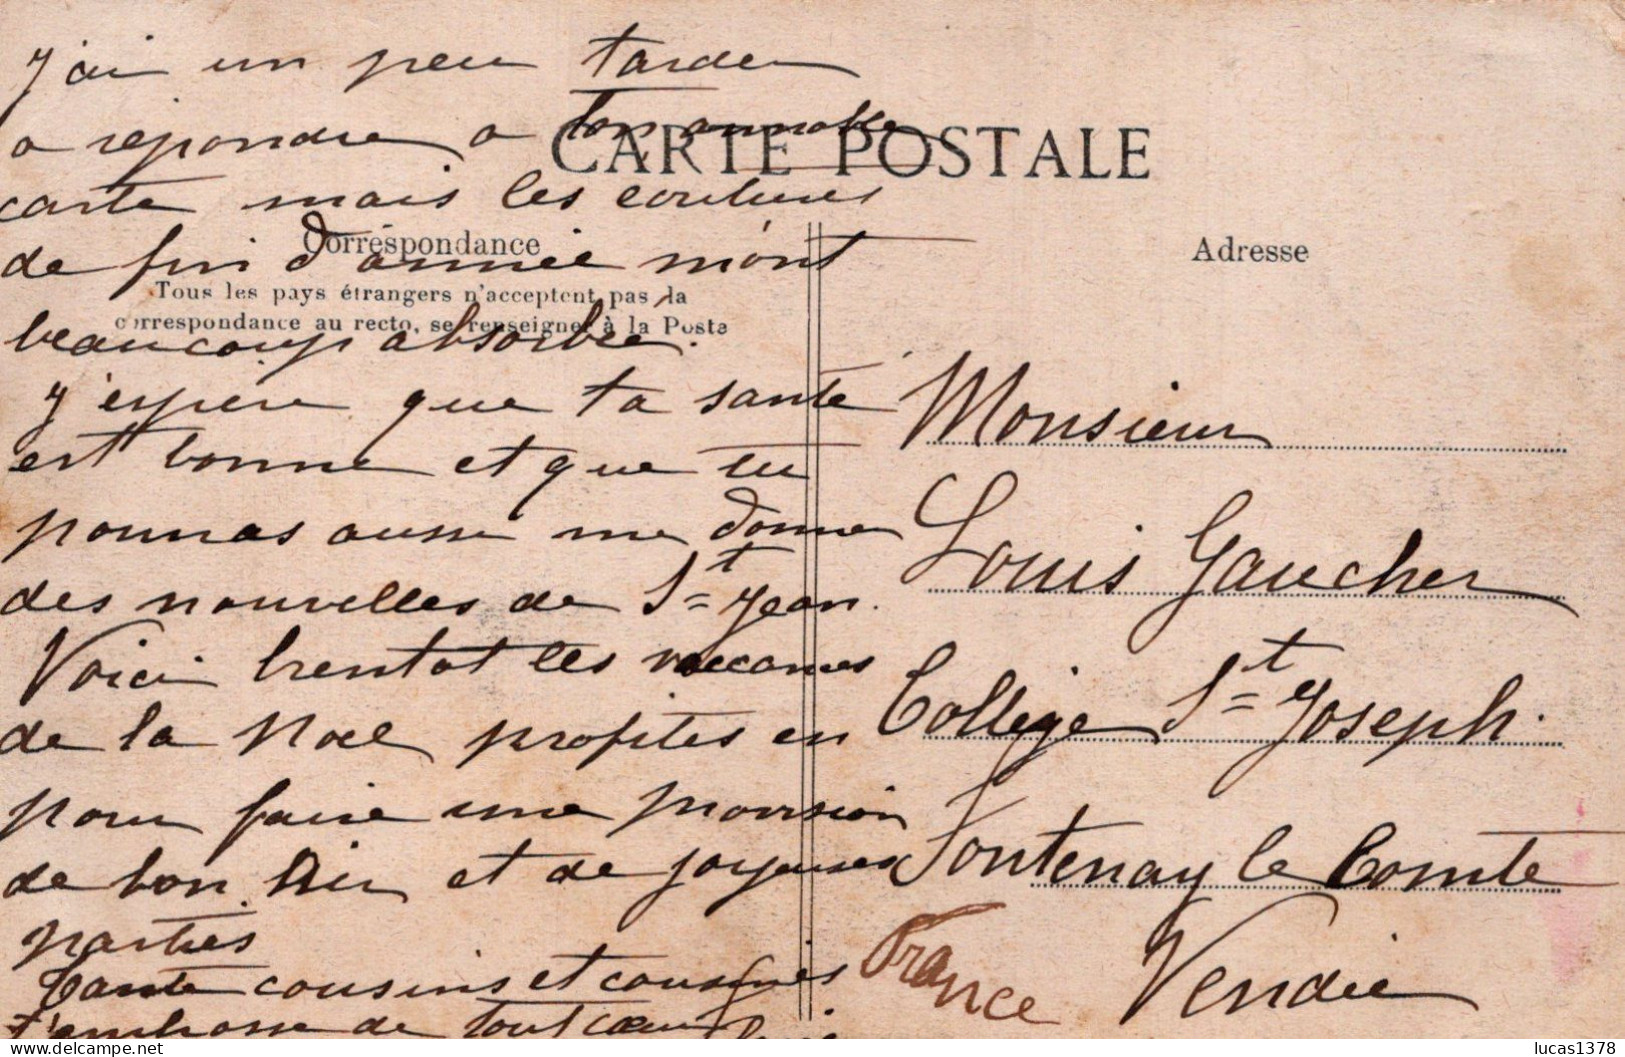 J'ai un peu tarder
a repondre a ton aimable
carte mais les coutures
de fin d'année m'ont
beaucoup absorbée.
J'espère que ta santé
est bonne et que tu
pourras aussi me donner
des nouvelles de St Jean.
Voici bientot les vaccances
de la Noel profites en
pour faire une provision
de bon air et de joyeuses
parties
Tante cousins et cousines
t'embrasse de tout cœur
CARTE POSTALE
Correspondance
Tous les pays étrangers n'acceptent pas la
correspondance au recto, se renseigner à la Poste
Adresse
Monsieur
Louis Gaucher
Collège St Joseph.
Fontenay le Comte
Vendée
France
lucas1378